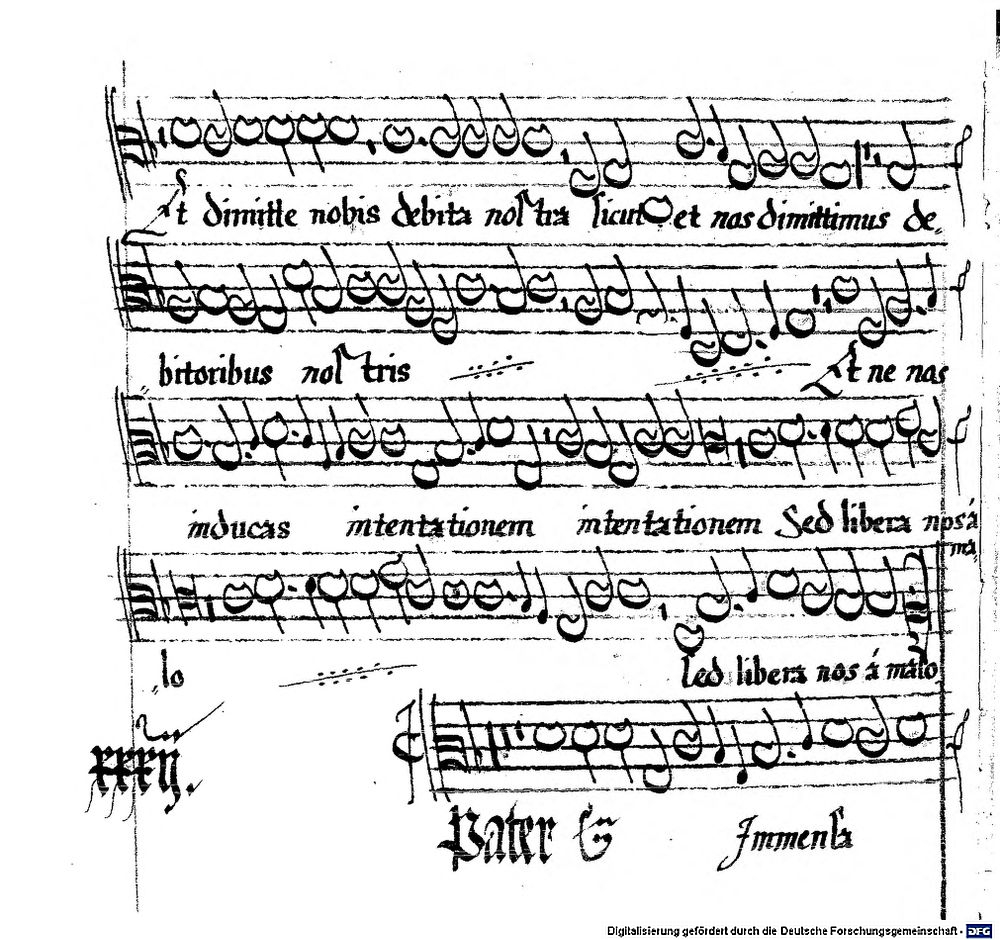 Et dimitte nobis debita nostra sicut et nos dimittimus de,
bitoribus nostris Et ne nos
inducas intentationem intentationem Sed libera nos á
ma,
lo sed libera nos á malo
Pater Immensa
Digitalisierung gefördert durch die Deutsche Forschungsgemeinschaft - DFG